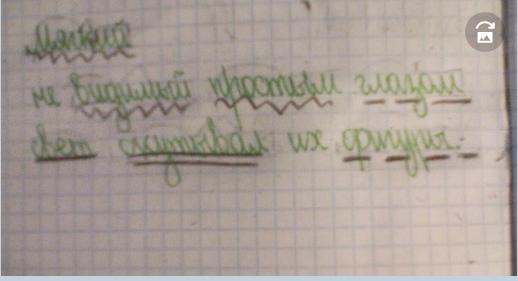 Мягкий
не видимый простым глазом
свет окутывал их фигуры.